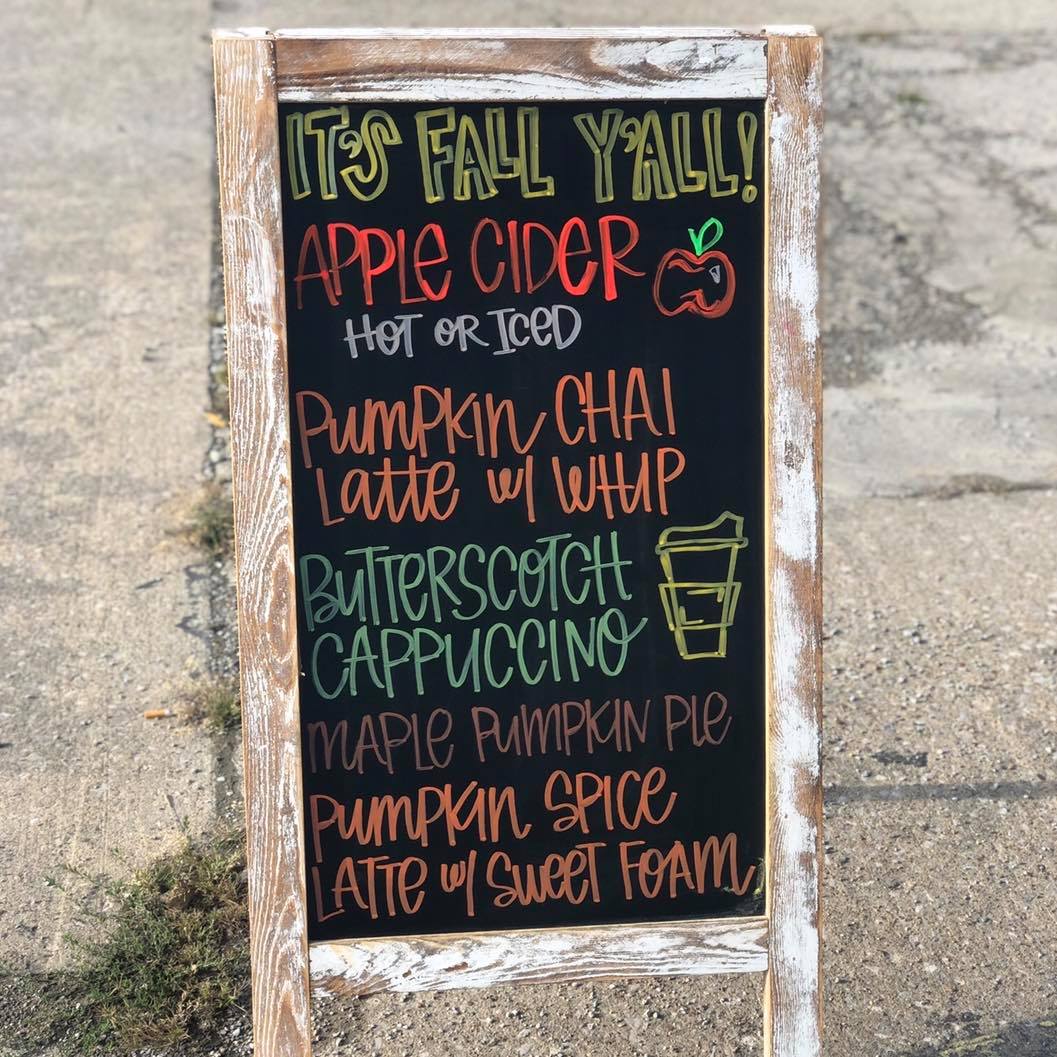 IT'S FALL Y'ALL!
APPLE CIDER
HOT OR ICED
PUMPKIN CHAI
Latte w/ WHIP
BUTTERSCOTCH
CAPPUCCINO
MAPLE PUMPKIN PIE
PUMPKIN SPICE
LATTE w/ SWEET FOAM